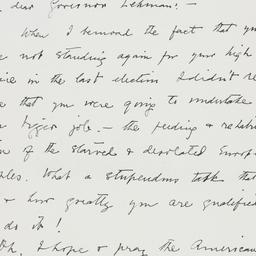 dear Governor Lehman! —
When I bemoaned the fact that you
not standing again for your high
in the last election I didn't
that you were going to undertake
bigger job — the feeding &
of the starved & desolated Europ
What a stupendous task that
& how greatly you are qualified
do it!
Oh, I hope & pray the American